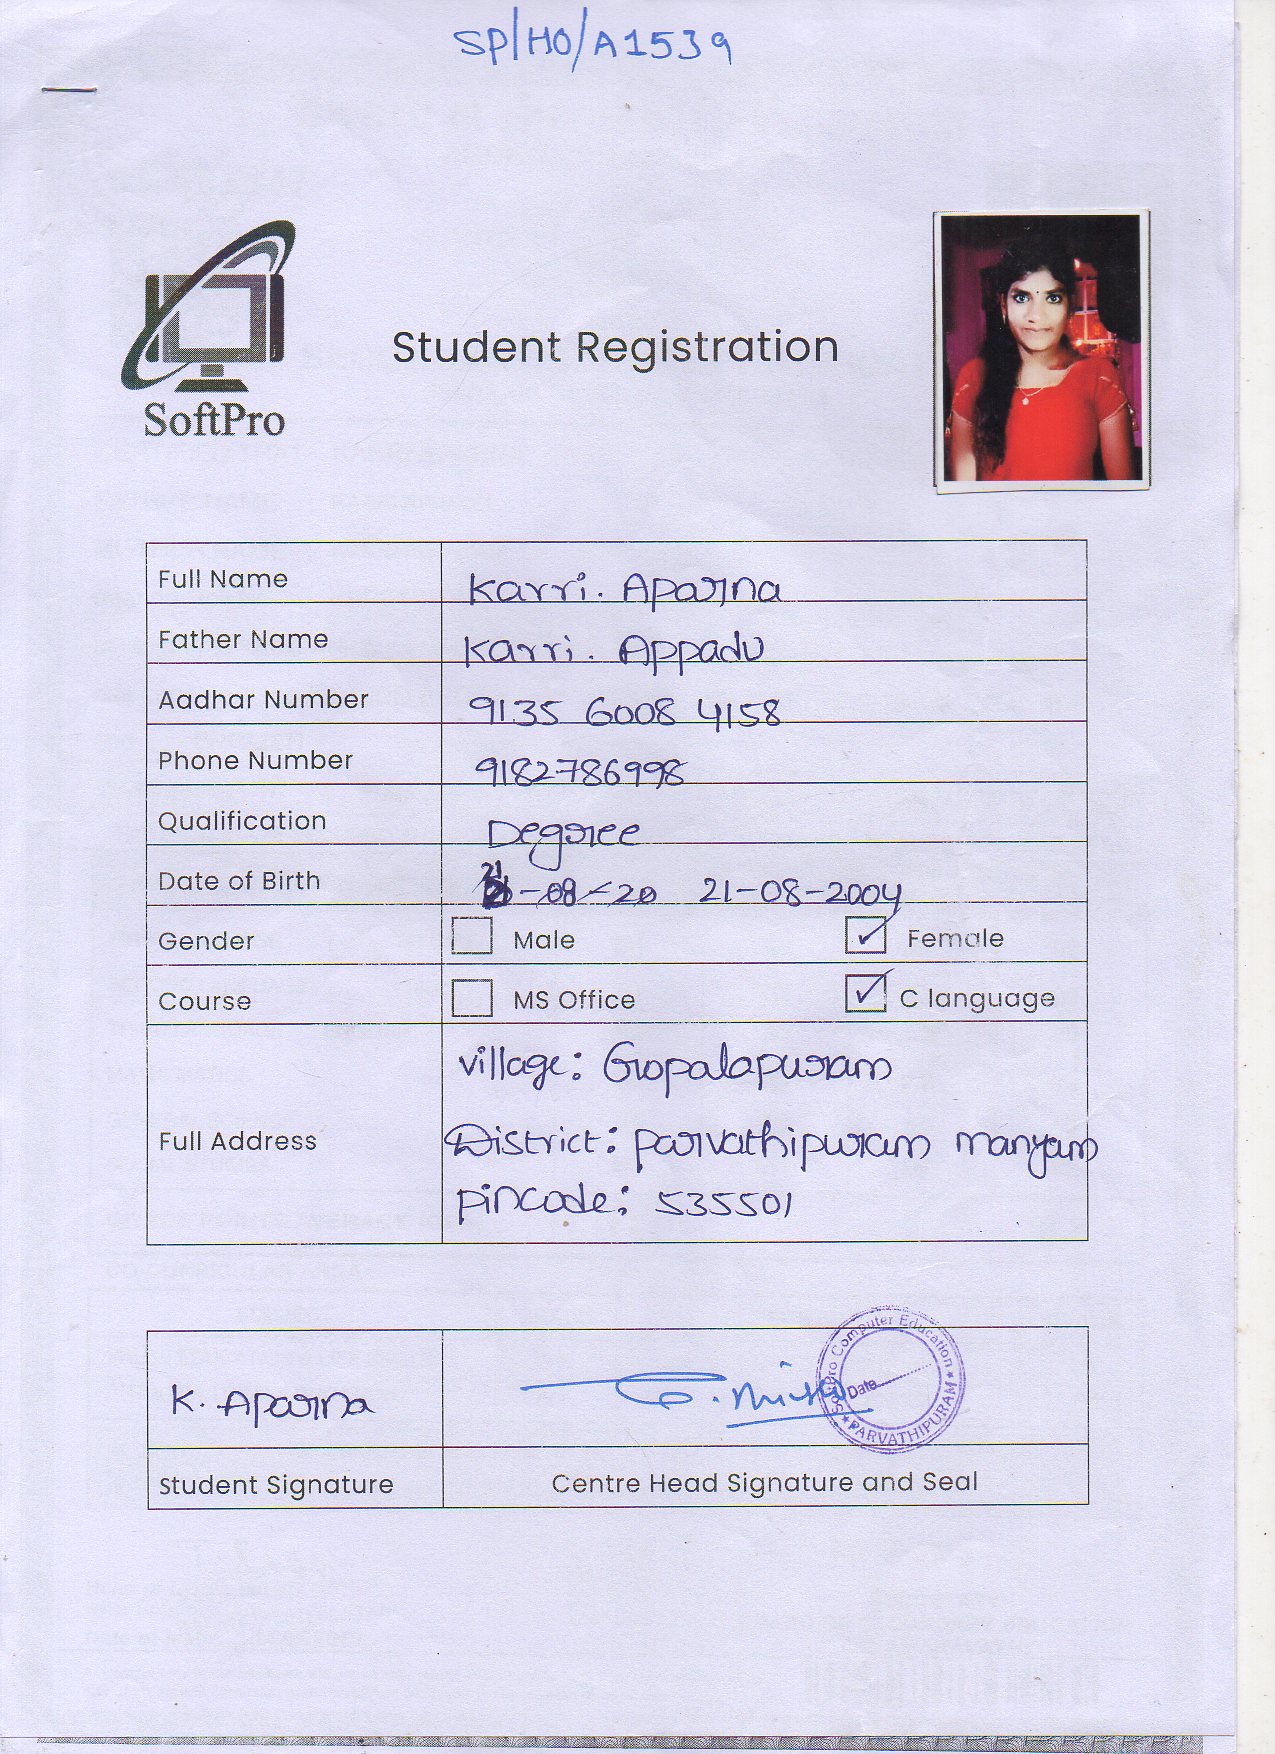 SP/HO/A1539
SoftPro
Student Registration
Full Name Karri. Aparna
Father Name Karri. Appadu
Aadhar Number 9135 6008 4158
Phone Number 9182786998
Qualification Degree
Date of Birth 21-08-20 21-08-2004
Gender Male Female
Course MS Office C language
Full Address
village: Gopalapuram
District: parvathipuram manyam
pincode: 535501
K. Aparna
SoftPro Computer Education
Date
PARVATHIPURAM
Student Signature Centre Head Signature and Seal